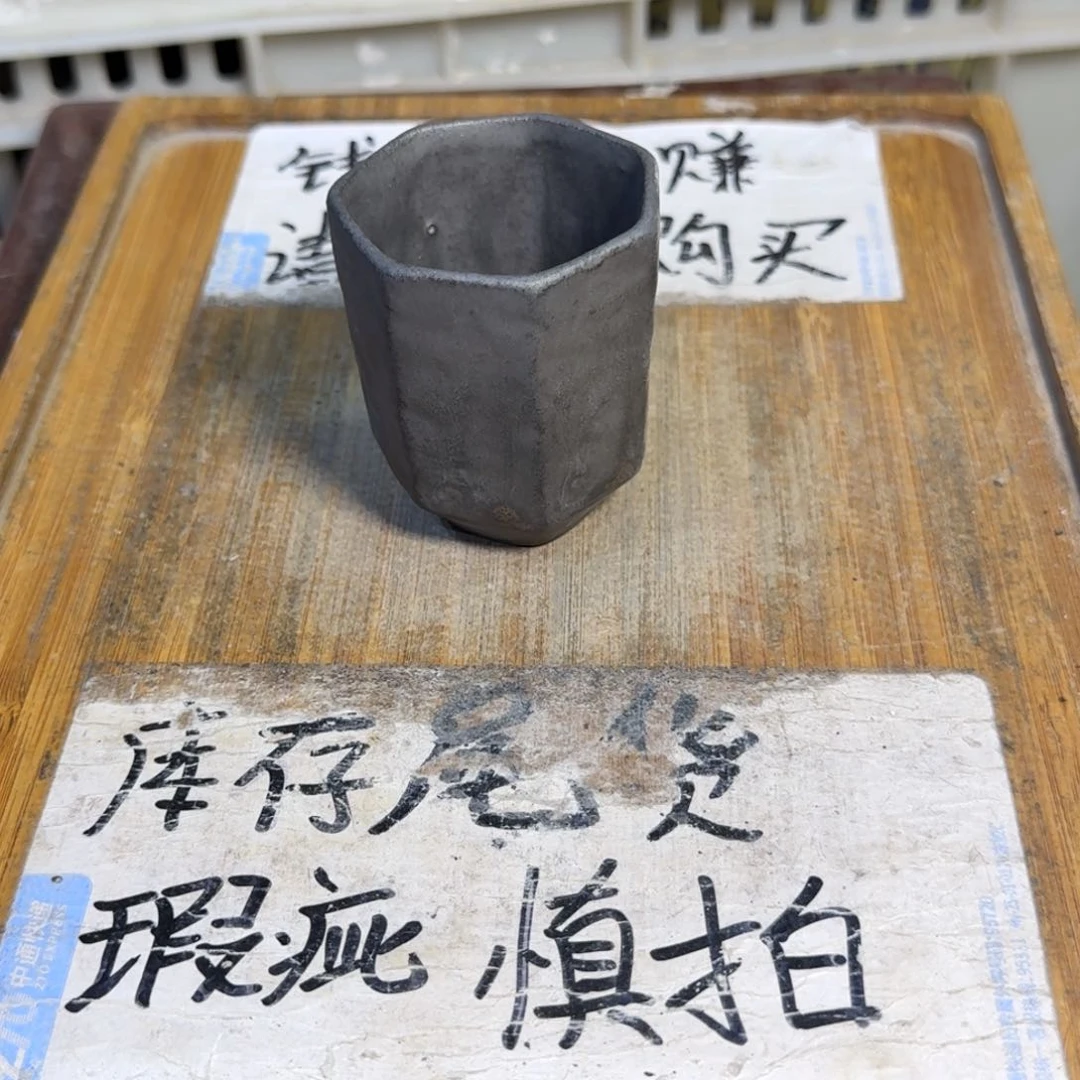 钱 赚
购买
库存尾货
瑕疵 慎拍
中通快递
ZTO EXPRESS